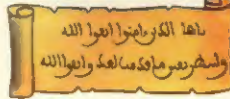 يأيها الذين ءامنوا اتقوا الله
ولتنظر نفس ما قدمت لغد واتقوا الله